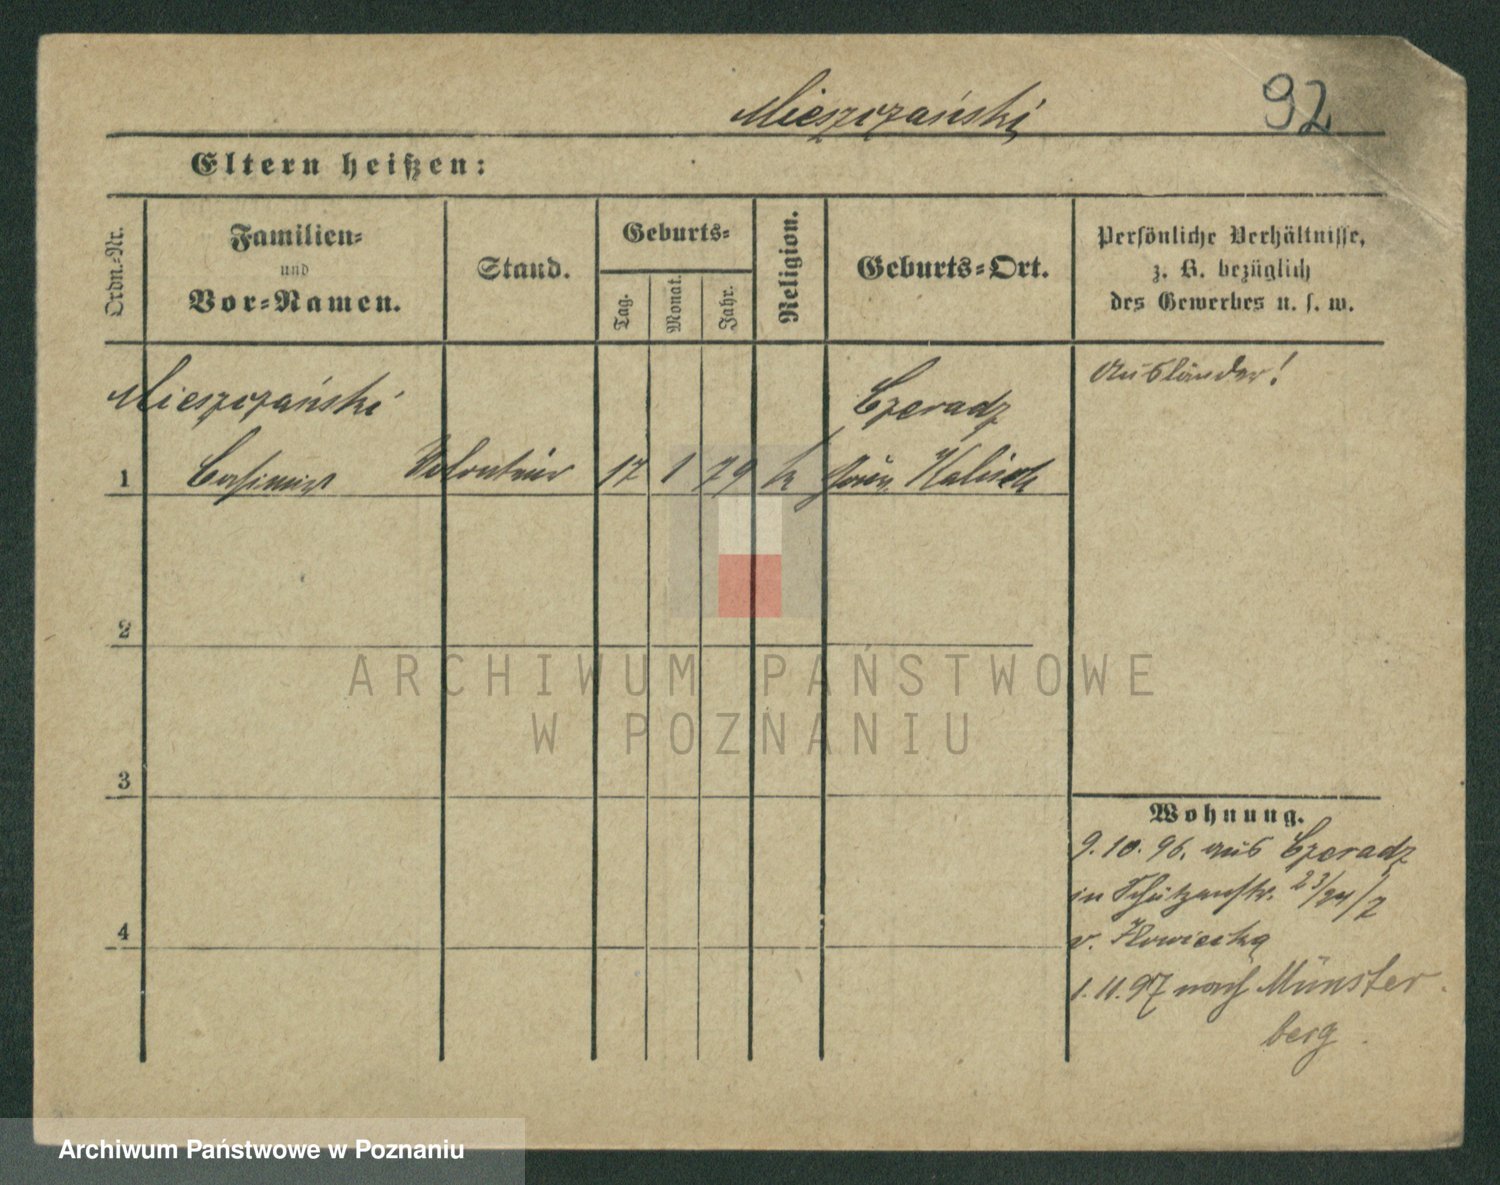 Mieszczański
92
Eltern heißen:
Ordn.-Nr.
Familien-
und
Vor-Namen.
Stand.
Geburts-
Tag.
Monat.
Jahr.
Religion.
Geburts-Ort.
Persönliche Verhältnisse,
z. B. bezüglich
des Gewerbes u. s. w.
Mieszczański
Czeradz
Ausländer!
1 Casimir Volontair 17 1 79 k Kalisch
2
3
4
Wohnung.
9.10.96. aus Czeradz
in Schützenstr. 23/24/7
v. Ilowiecka
1.11.97 nach Münster
berg
ARCHIWUM PAŃSTWOWE
W POZNANIU
Archiwum Państwowe w Poznaniu